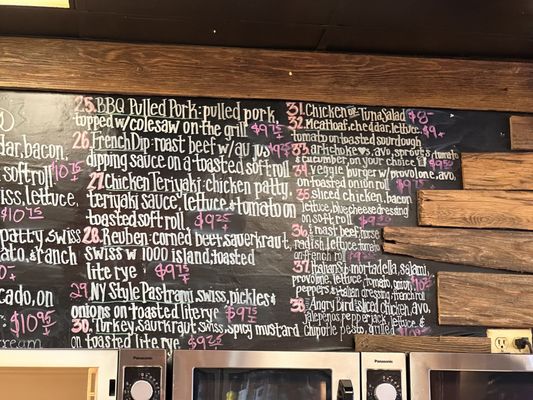 dar, bacon,
soft roll $10.75
iss, lettuce,
$10.75
patty, swiss
to, & ranch
cado, on
$10.95
cream
25. BBQ Pulled Pork: pulled pork,
topped w/ colesaw on the grill $9.75
26. French Dip: roast beef w/ au jus
dipping sauce on a toasted soft roll
27. Chicken Teriyaki: chicken patty,
teriyaki sauce, lettuce & tomato on
toasted soft roll $9.25
28. Reuben: corned beef, sauerkraut,
swiss w 1000 island, toasted
lite rye $9.75
29. NY Style Pastrami, swiss, pickles &
onions on toasted lite rye $9.75
30. Turkey, saurkraut, swiss, spicy mustard
on toasted lite rye $9.25
31. Chicken or Tuna Salad
32. Meatloaf, cheddar, lettuce,
tomato on toasted sourdough
33. artichoke ♥s, avo, sprouts, tomato
& cucumber, on your choice
34. veggie burger w/ provolone, avo,
on toasted onion roll
35. sliced chicken, bacon,
lettuce, blue cheese dressing
on soft roll
36. roast beef, horse
radish, lettuce, tomato on
onion roll
37. Italian: mortadella, salami,
provolone, lettuce, tomato, onion,
peppers, & italian dressing, french roll
38. Angry Bird: sliced chicken,
jalepeños, pepperjack, lettuce &
chipotle pesto, grilled
Panasonic
Panasonic